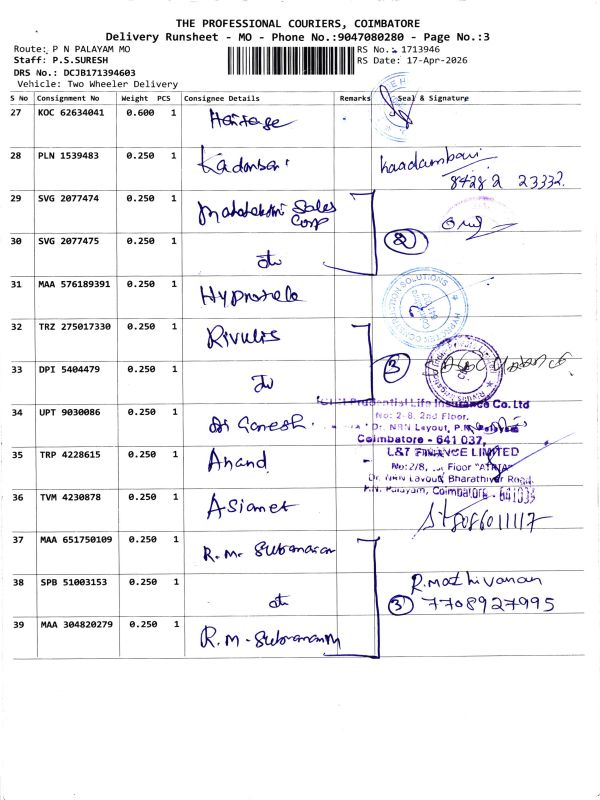 THE PROFESSIONAL COURIERS, COIMBATORE
Delivery Runsheet - MO - Phone No.:9047080280 - Page No.:3
Route: P N PALAYAM MO
RS No.: 1713946
Staff: P.S.SURESH
RS Date: 17-Apr-2026
DRS No.: DCJB171394603
Vehicle: Two Wheeler Delivery
S No Consignment No Weight PCS Consignee Details Remarks Seal & Signature
27 KOC 62634041 0.600 1 Heritage
28 PLN 1539483 0.250 1 Kadambari Kaadambari
84282 23332.
29 SVG 2077474 0.250 1 Mahalakshmi Sales Corp
30 SVG 2077475 0.250 1 do 2
31 MAA 576189391 0.250 1
32 TRZ 275017330 0.250 1 Rivulis
33 DPI 5404479 0.250 1 do 3
34 UPT 9030086 0.250 1 Sri Ganesh
ICICI Prudential Life Insurance Co. Ltd
No: 2-8, 2nd Floor,
Dr. NRN Layout, P.N.
Coimbatore - 641 037,
35 TRP 4228615 0.250 1 Anand
L&T FINANCE LIMITED
No:2/8, Floor "ATRIA"
Dr. NRN Layout, Bharathiyar Road,
P.N. Palayam, Coimbatore - 641
36 TVM 4230878 0.250 1 Asianet
8086011117
37 MAA 651750109 0.250 1 R.M. Subramanian
38 SPB 51003153 0.250 1 do R.mathivanan
3 7708927995
39 MAA 304820279 0.250 1 R.M. Subramaniam